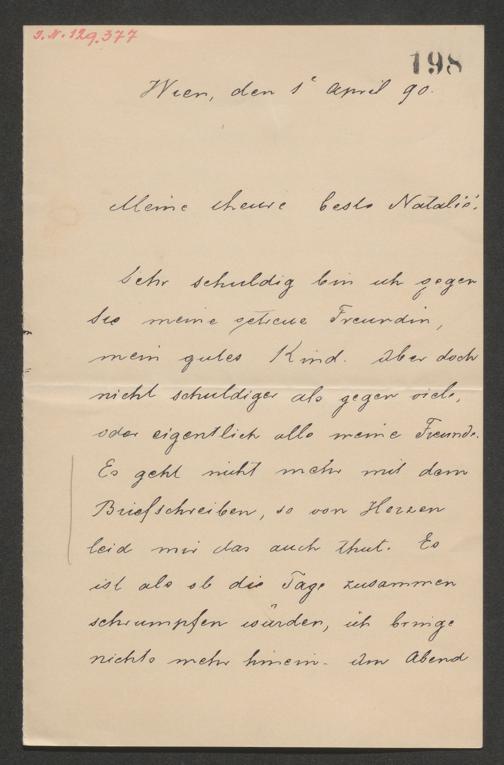 J.N. 129.377
198
Wien, den 1' April 90.
Meine theure beste Natalie!
Sehr schuldig bin ich gegen
Sie meine getreue Freundin,
mein gutes Kind. Aber doch
nicht schuldiger als gegen viele,
oder eigentlich alle meine Freunde.
Es geht nicht mehr mit dem
Briefschreiben, so von Herzen
leid mir das auch thut. Es
ist als ob die Tage zusammen
schrumpfen würden, ich bringe
nichts mehr hinein. Am Abend